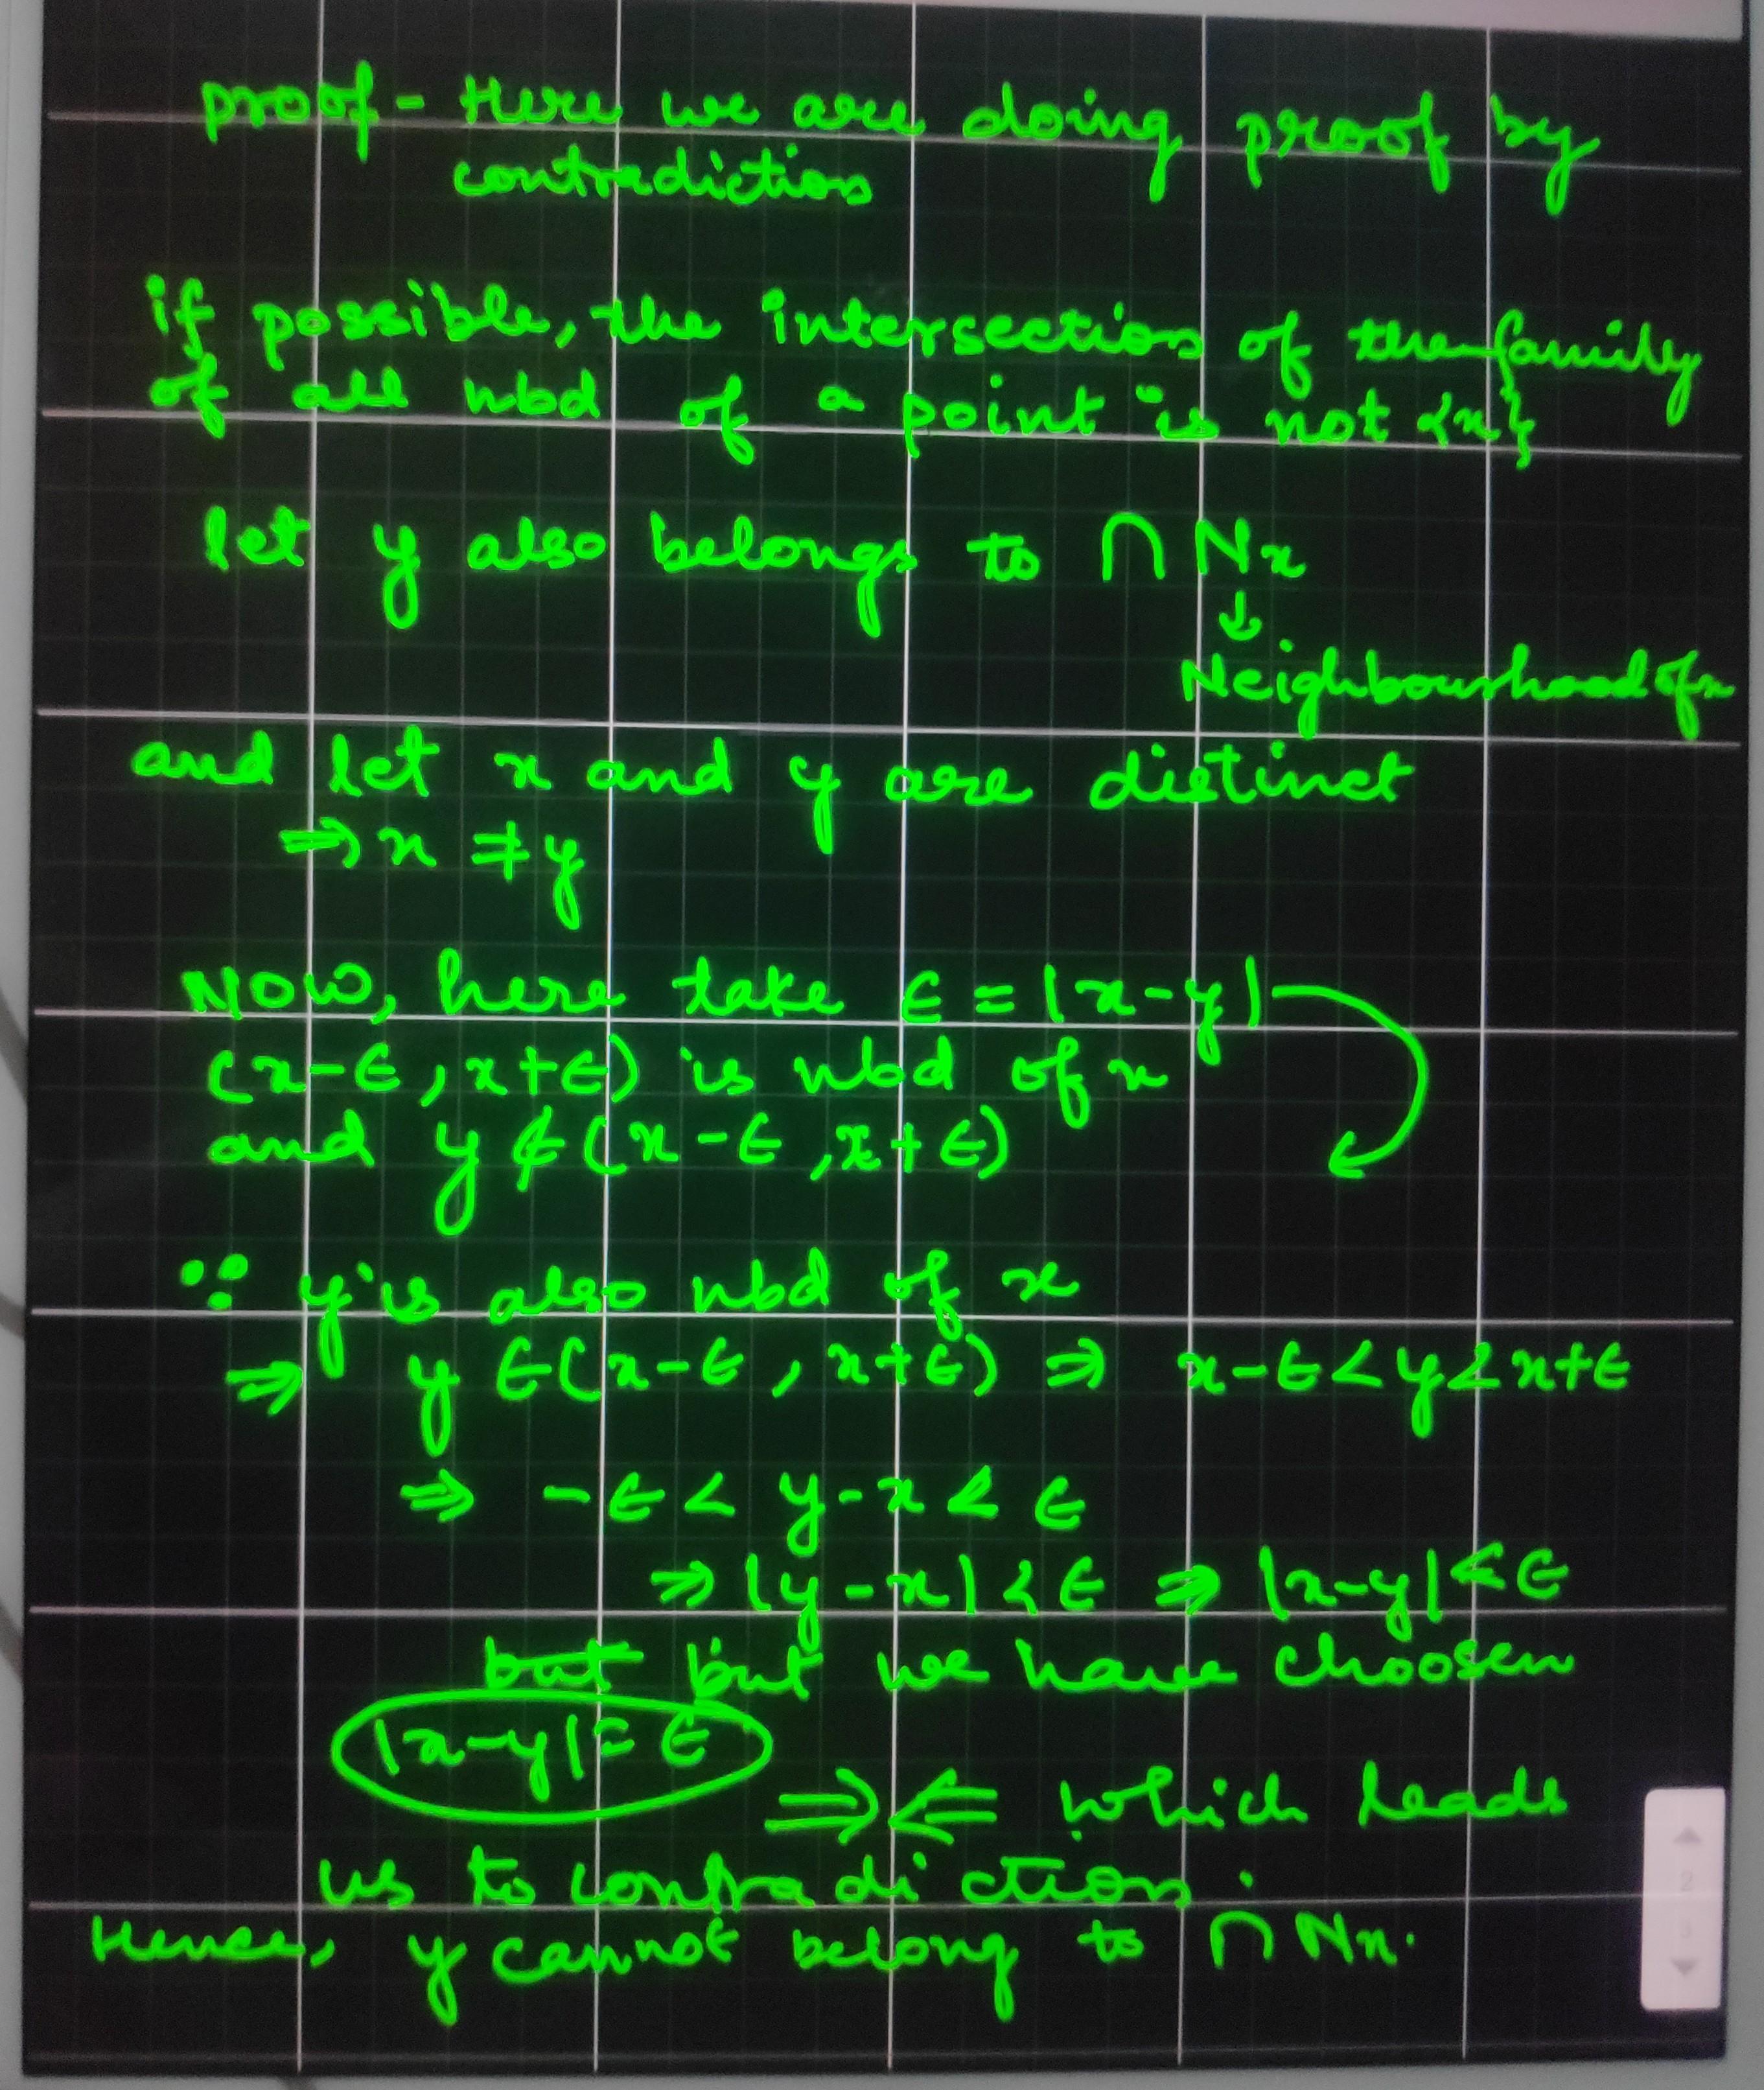 proof - Here we are doing proof by
contradiction
if possible, the intersection of the family
of all nbd of a point is not {x}
let y also belongs to ∩ Nx
↓
Neighbourhood of x
and let x and y are distinct
⇒ x ≠ y
Now, here take ϵ = |x-y|
(x-ϵ, x+ϵ) is nbd of x
and y ∉ (x-ϵ, x+ϵ)
∵ y is also nbd of x
⇒ y ∈ (x-ϵ, x+ϵ) ⇒ x-ϵ < y < x+ϵ
⇒ -ϵ < y-x < ϵ
⇒ |y-x| < ϵ ⇒ |x-y| < ϵ
but but we have choosen
|x-y| = ϵ
⇒⇐ which leads
us to contradiction.
Hence, y cannot belong to ∩ Nx.
2
3